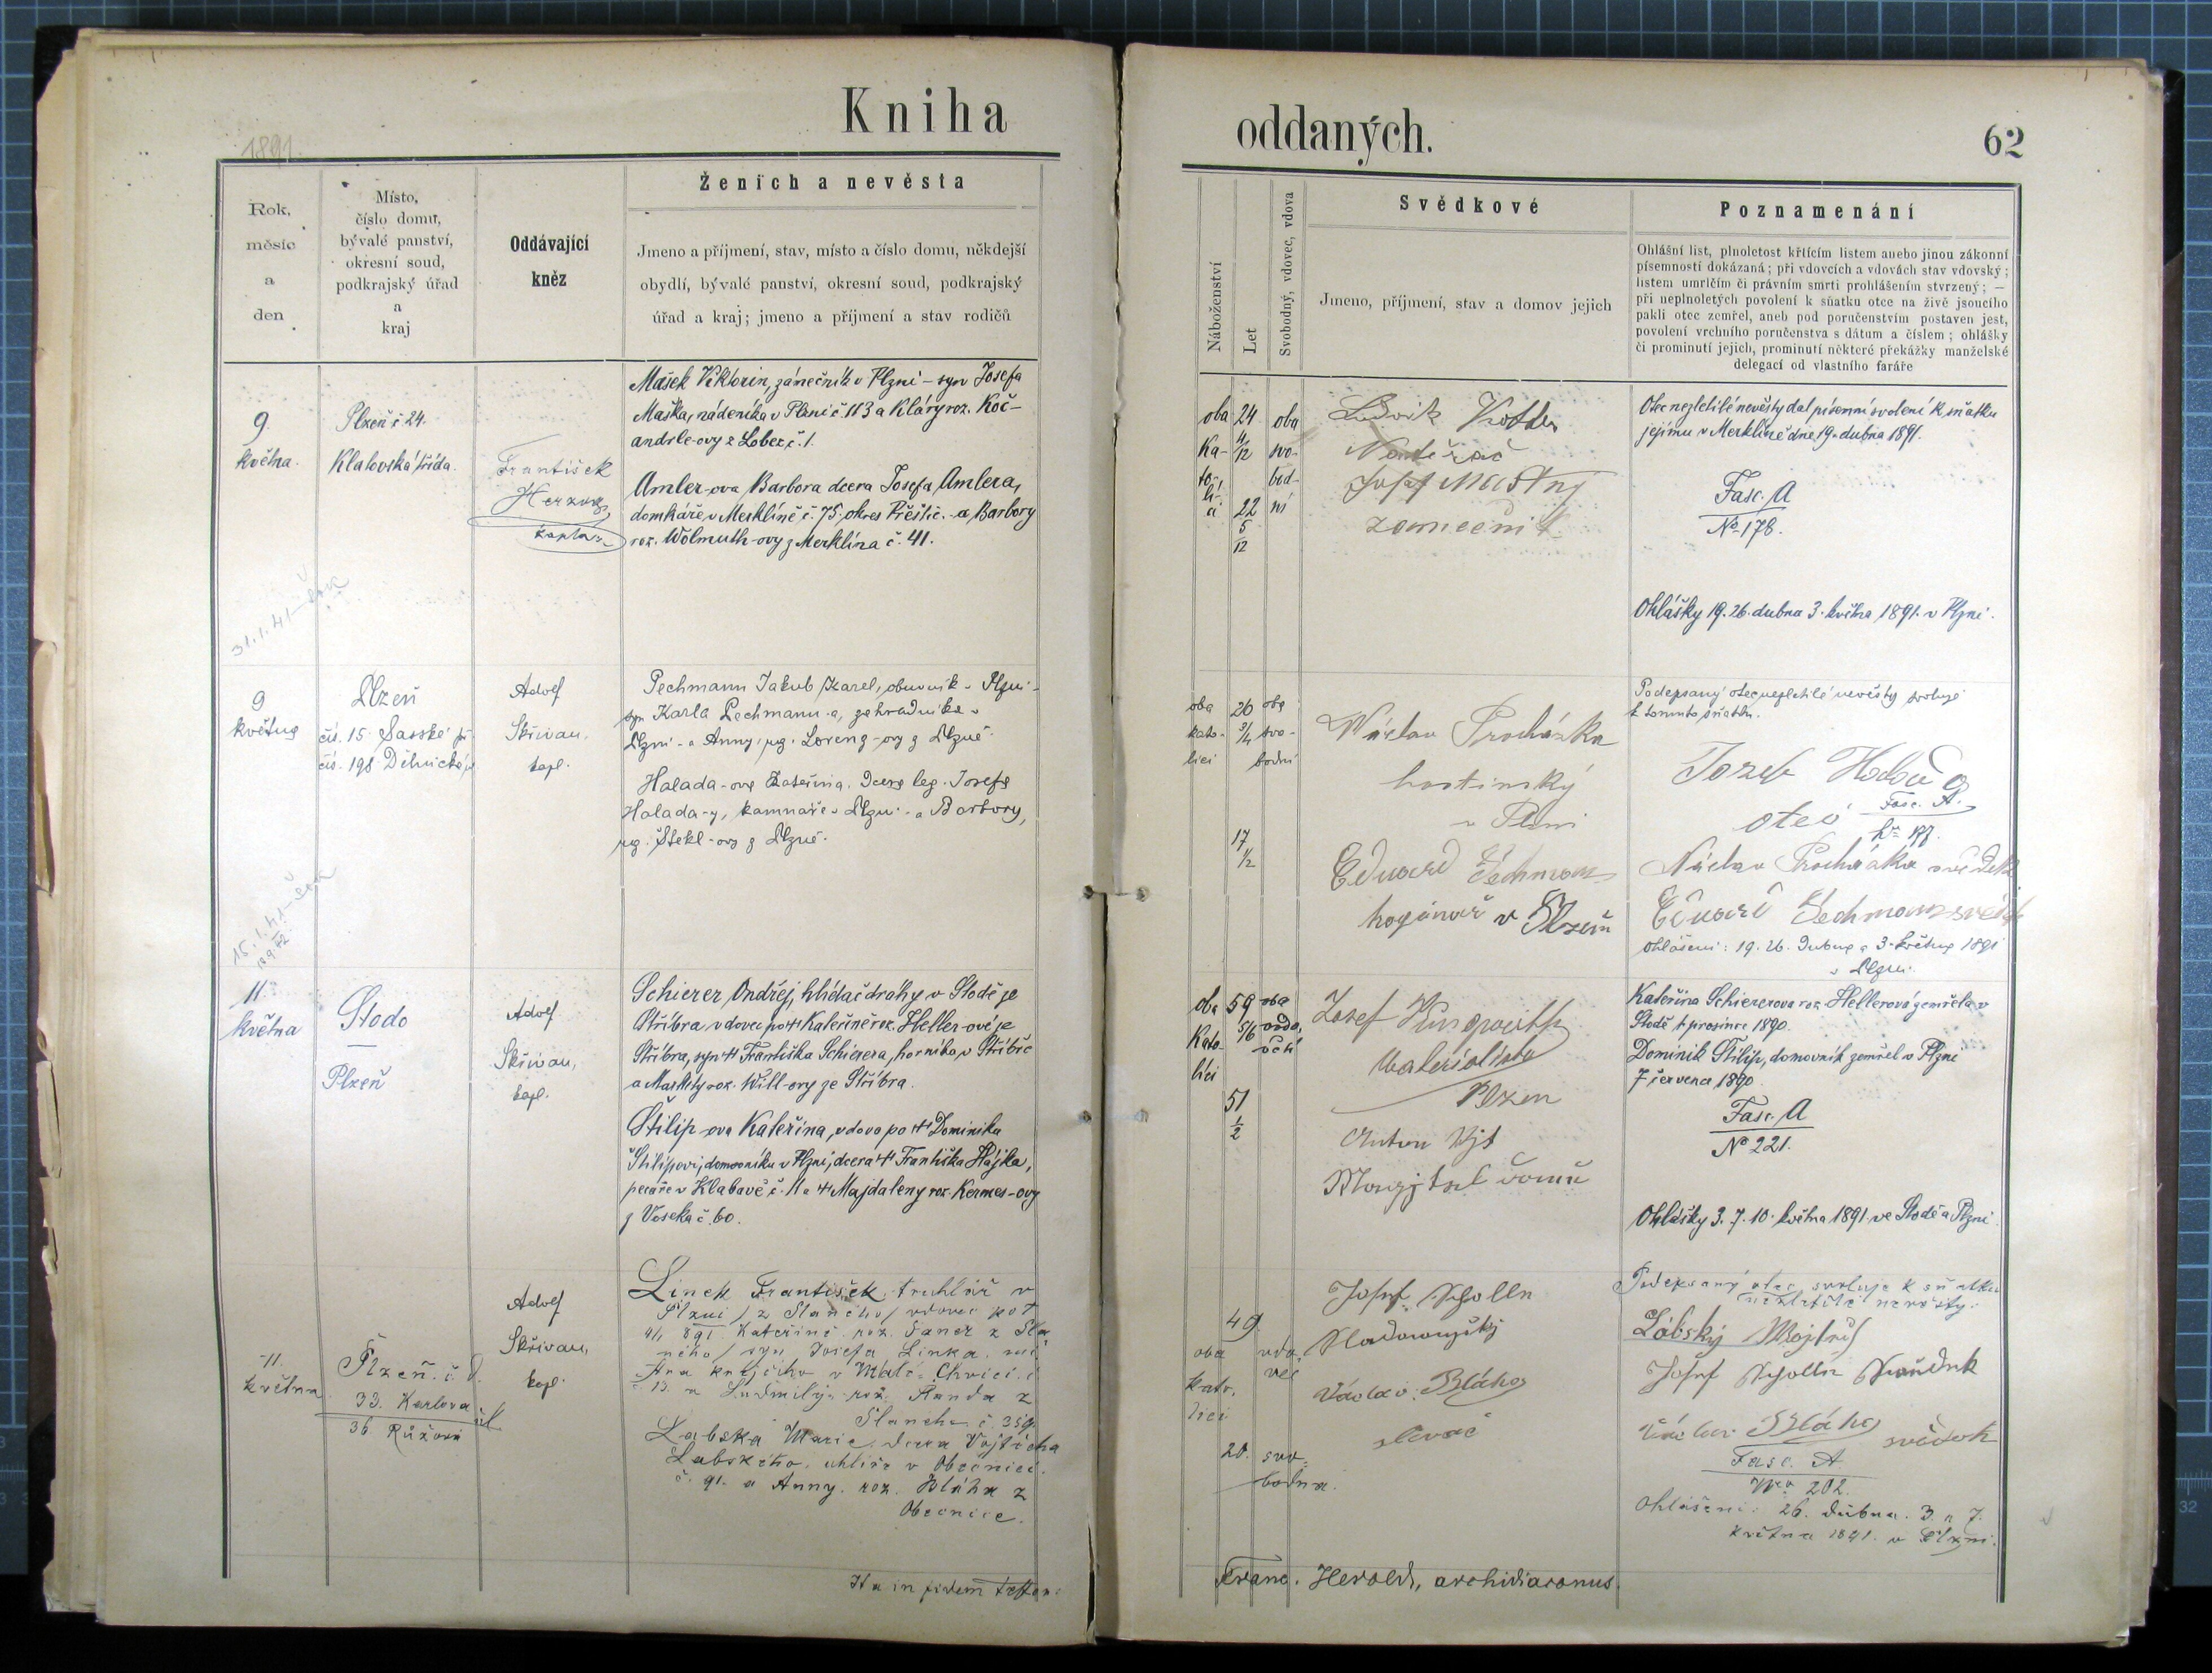 Kniha
oddaných.
62
1891.
Rok,
měsíc
a
den
Místo,
číslo domu,
bývalé panství,
okresní soud,
podkrajský úřad
a
kraj
Oddávající
kněz
Ženich a nevěsta
Jmeno a příjmení, stav, místo a číslo domu, někdejší
obydlí, bývalé panství, okresní soud, podkrajský
úřad a kraj; jmeno a příjmení a stav rodičů
Náboženství
Let
Svobodný, vdovec, vdova
Svědkové
Jmeno, příjmení, stav a domov jejich
Poznamenání
Ohlášní list, plnoletost křtícím listem anebo jinou zákonní
písemností dokázaná; při vdovcích a vdovách stav vdovský;
listem umrlčím či právním smrti prohlášením stvrzený; —
při neplnoletých povolení k sňatku otce na živě jsoucího
pakli otec zemřel, aneb pod poručenstvím postaven jest,
povolení vrchního poručenstva s dátum a číslem; ohlášky
či prominutí jejich, prominutí některé překážky manželské
delegací od vlastního faráře
9.
května.
Plzeň č 24.
Klatovská třída.
František
Herzog,
kaplan
Mašek Viktorin, zámečník v Plzni – syn Josefa
Maška, nádeníka v Plzni č 113 a Kláry roz. Koč-
andrle-ovy z Lobez, č. 1.
Amler-ova Barbora dcera Josefa Amlera,
domkáře, v Merklíně č. 75, okres Přeštic. - a Barbory
roz. Wolmuth-ovy z Merklína č. 41.
31.1.41
oba
Ka-
to-
li-
24
4/12
22
5
12
oba
svo-
bod-
ní
Ludvik
Josef Mastny
zamečnik
Otec nezletilé nevěsty dal písemní svolení k sňatku
jejímu v Merklíně dne 19. dubna 1891.
Fasc. A
No 178.
Ohlášky 19. 26. dubna 3. května 1891. v Plzni.
9
května
Plzeň
čís. 15. Sasské př.
čís. 198 Dělnická
Adolf
Skřivan,
kapl.
Pechmann Jakub Karel, obuvník v Plzni -
syn Karla Pechmann-a, zahradníka v
Plzni - a Anny, roz. Loreng-ovy z Plzně.
Halada-ova Kateřina, dcera leg. Josefa
Halada-y, kamnáře v Plzni - a Barbory,
roz. Štekl-ovy z Plzně.
15.1.41
oba
kato-
lící
26
3/4
17
1/2
oba
svo-
bodni
Václav Procházka
hostinský
v Plzni
Eduard Pechmann
v Plzeni
Podepsaný otec nezletilé nevěsty svoluje
k tomuto sňatku.
Jozeb
oteć
Fasc. A.
Václav Procházka svědek
Eduard Pechmann
Ohlášeni: 19. 26. dubna a 3. května 1891
v Plzni.
11.
května
Stodo
Plzeň
Adolf
Skřivan,
kapl.
Schierer Ondřej, hlídač dráhy v Stodě ze
Stříbra vdovec po † Kateřině roz. Heller-ové ze
Stříbra, syn † Františka Schierera, horníka v Stříbře
a Markéty roz. Will-ovy ze Stříbra.
Štilip-ova Kateřina, vdova po † Dominiku
Štilipovi, domovníku v Plzni, dcera † Františka Hájka,
pekaře v Klabavě č. 11 a † Majdaleny roz. Kermes-ovy
z Voseka č. 60.
oba
Kato-
líci
59
5/6
51
1/2
oba
vdo-
včí
Josef
Materialista
Plzen
Anton
Kateřina Schiererova roz. Hellerová zemřela v
Stodě prosince 1890.
Dominik Štilip, domovník zemřel v Plzni
7 června 1890.
Fasc. A
No 221.
Ohlášky 3. 7. 10. května 1891 ve Stodě a Plzni
11.
května
Plzeň. č. d.
33. Karlova
36 Růžová ul
Adolf
Skřivan,
kapl.
Linek František, truhlář v
Plzni / z Slaného / vdovec po †
4/1 891. Kateřině roz. Saner z Sla
ného / syn Josefa Linka, mi
stra krejčího v Malé Chvici, č
č 13. a Ludmily roz. Randa z
Slaneho č. 359.
Labská Marie, dcera Vojtěcha
Labského, uhlíře v Obecnici
č. 91. a Anny, roz. Bláha z
Obecnice.
oba
kato.
lici
49
20.
vdo-
vec
svo-
bodna.
Josef Scholln
Václav Bláha
slevač
Podepsaný otec svoluje k sňatku
nezletilé nevěsty.
Lábský
Josef Scholln
Václav Bláha svědek
Fasc. A.
Nro 202.
Ohlášeni: 26. dubna. 3. a 7.
května 1891. v Plzni.
Ita in fidem testor:
Franc. Herold, archidiaconus.